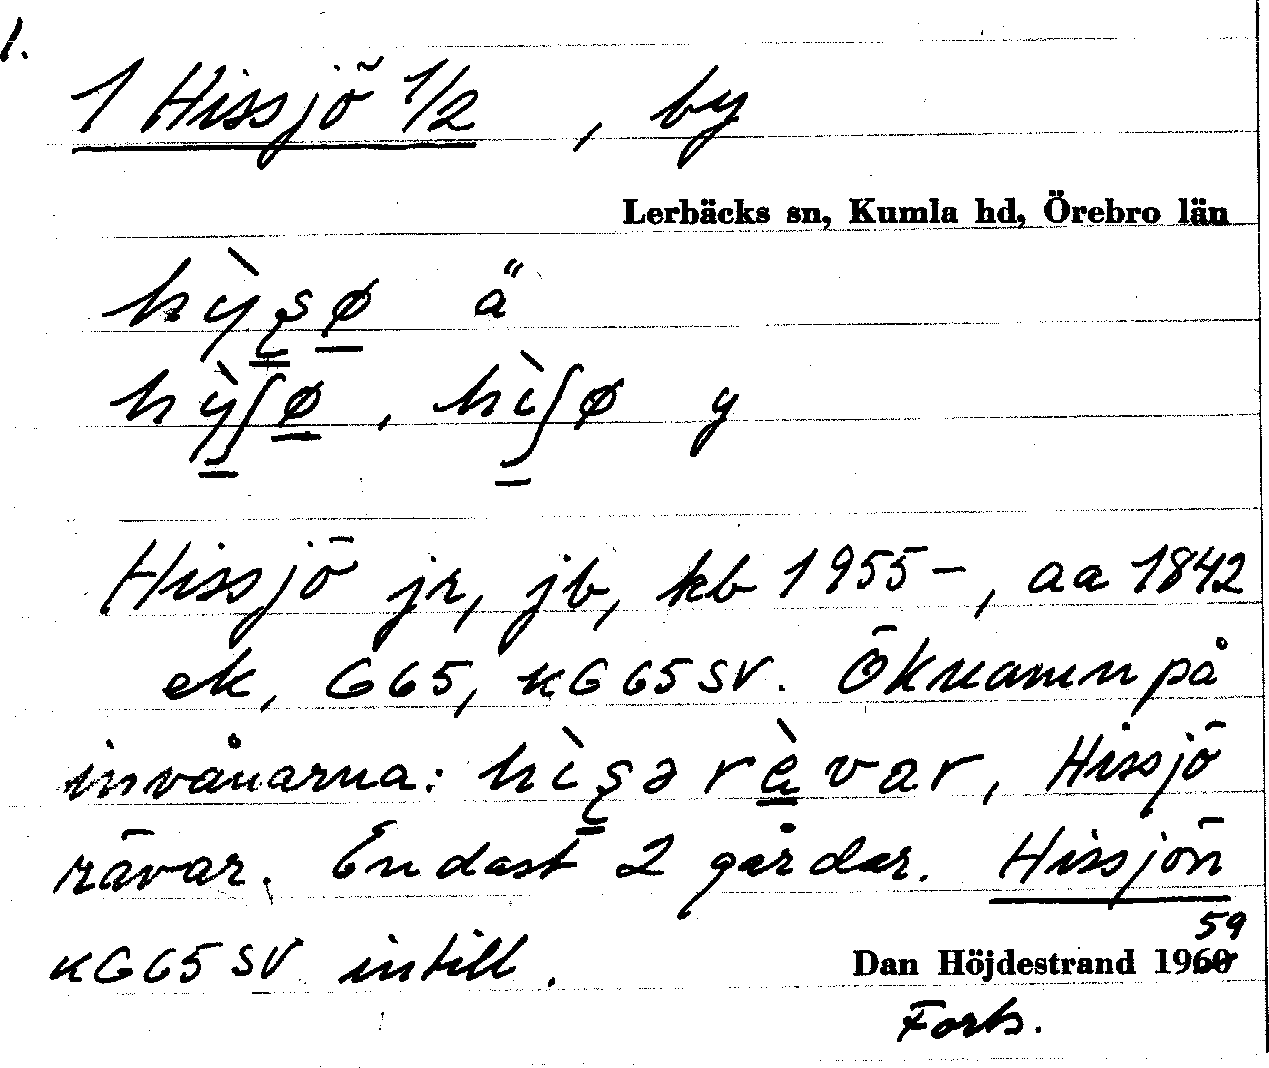 1.
1 Hissjö 1/2, by
Lerbäcks sn, Kumla hd, Örebro län
hỳʂø ä
hỳʃø, hìʃø y
Hissjö jr, jb, kb 1955-, aa 1842
ek, G65, kG65SV. Öknamn på
invånarna: hìʂə rèvar, Hissjö
rävar. Endast 2 gårdar. Hissjön
kG65SV intill.
Dan Höjdestrand 1960 59
Forts.